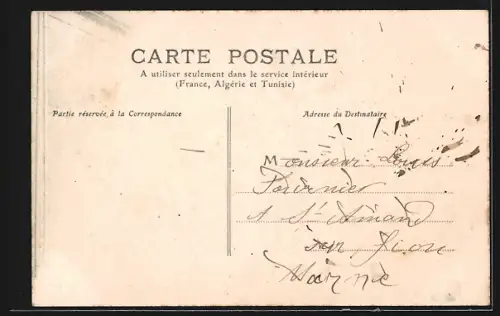 CARTE POSTALE
A utiliser seulement dans le service intérieur
(France, Algérie et Tunisie)
Partie réservée à la Correspondance
Adresse du Destinataire
Monsieur Louis
Fournier
A St Amand
sur Fion
Marne